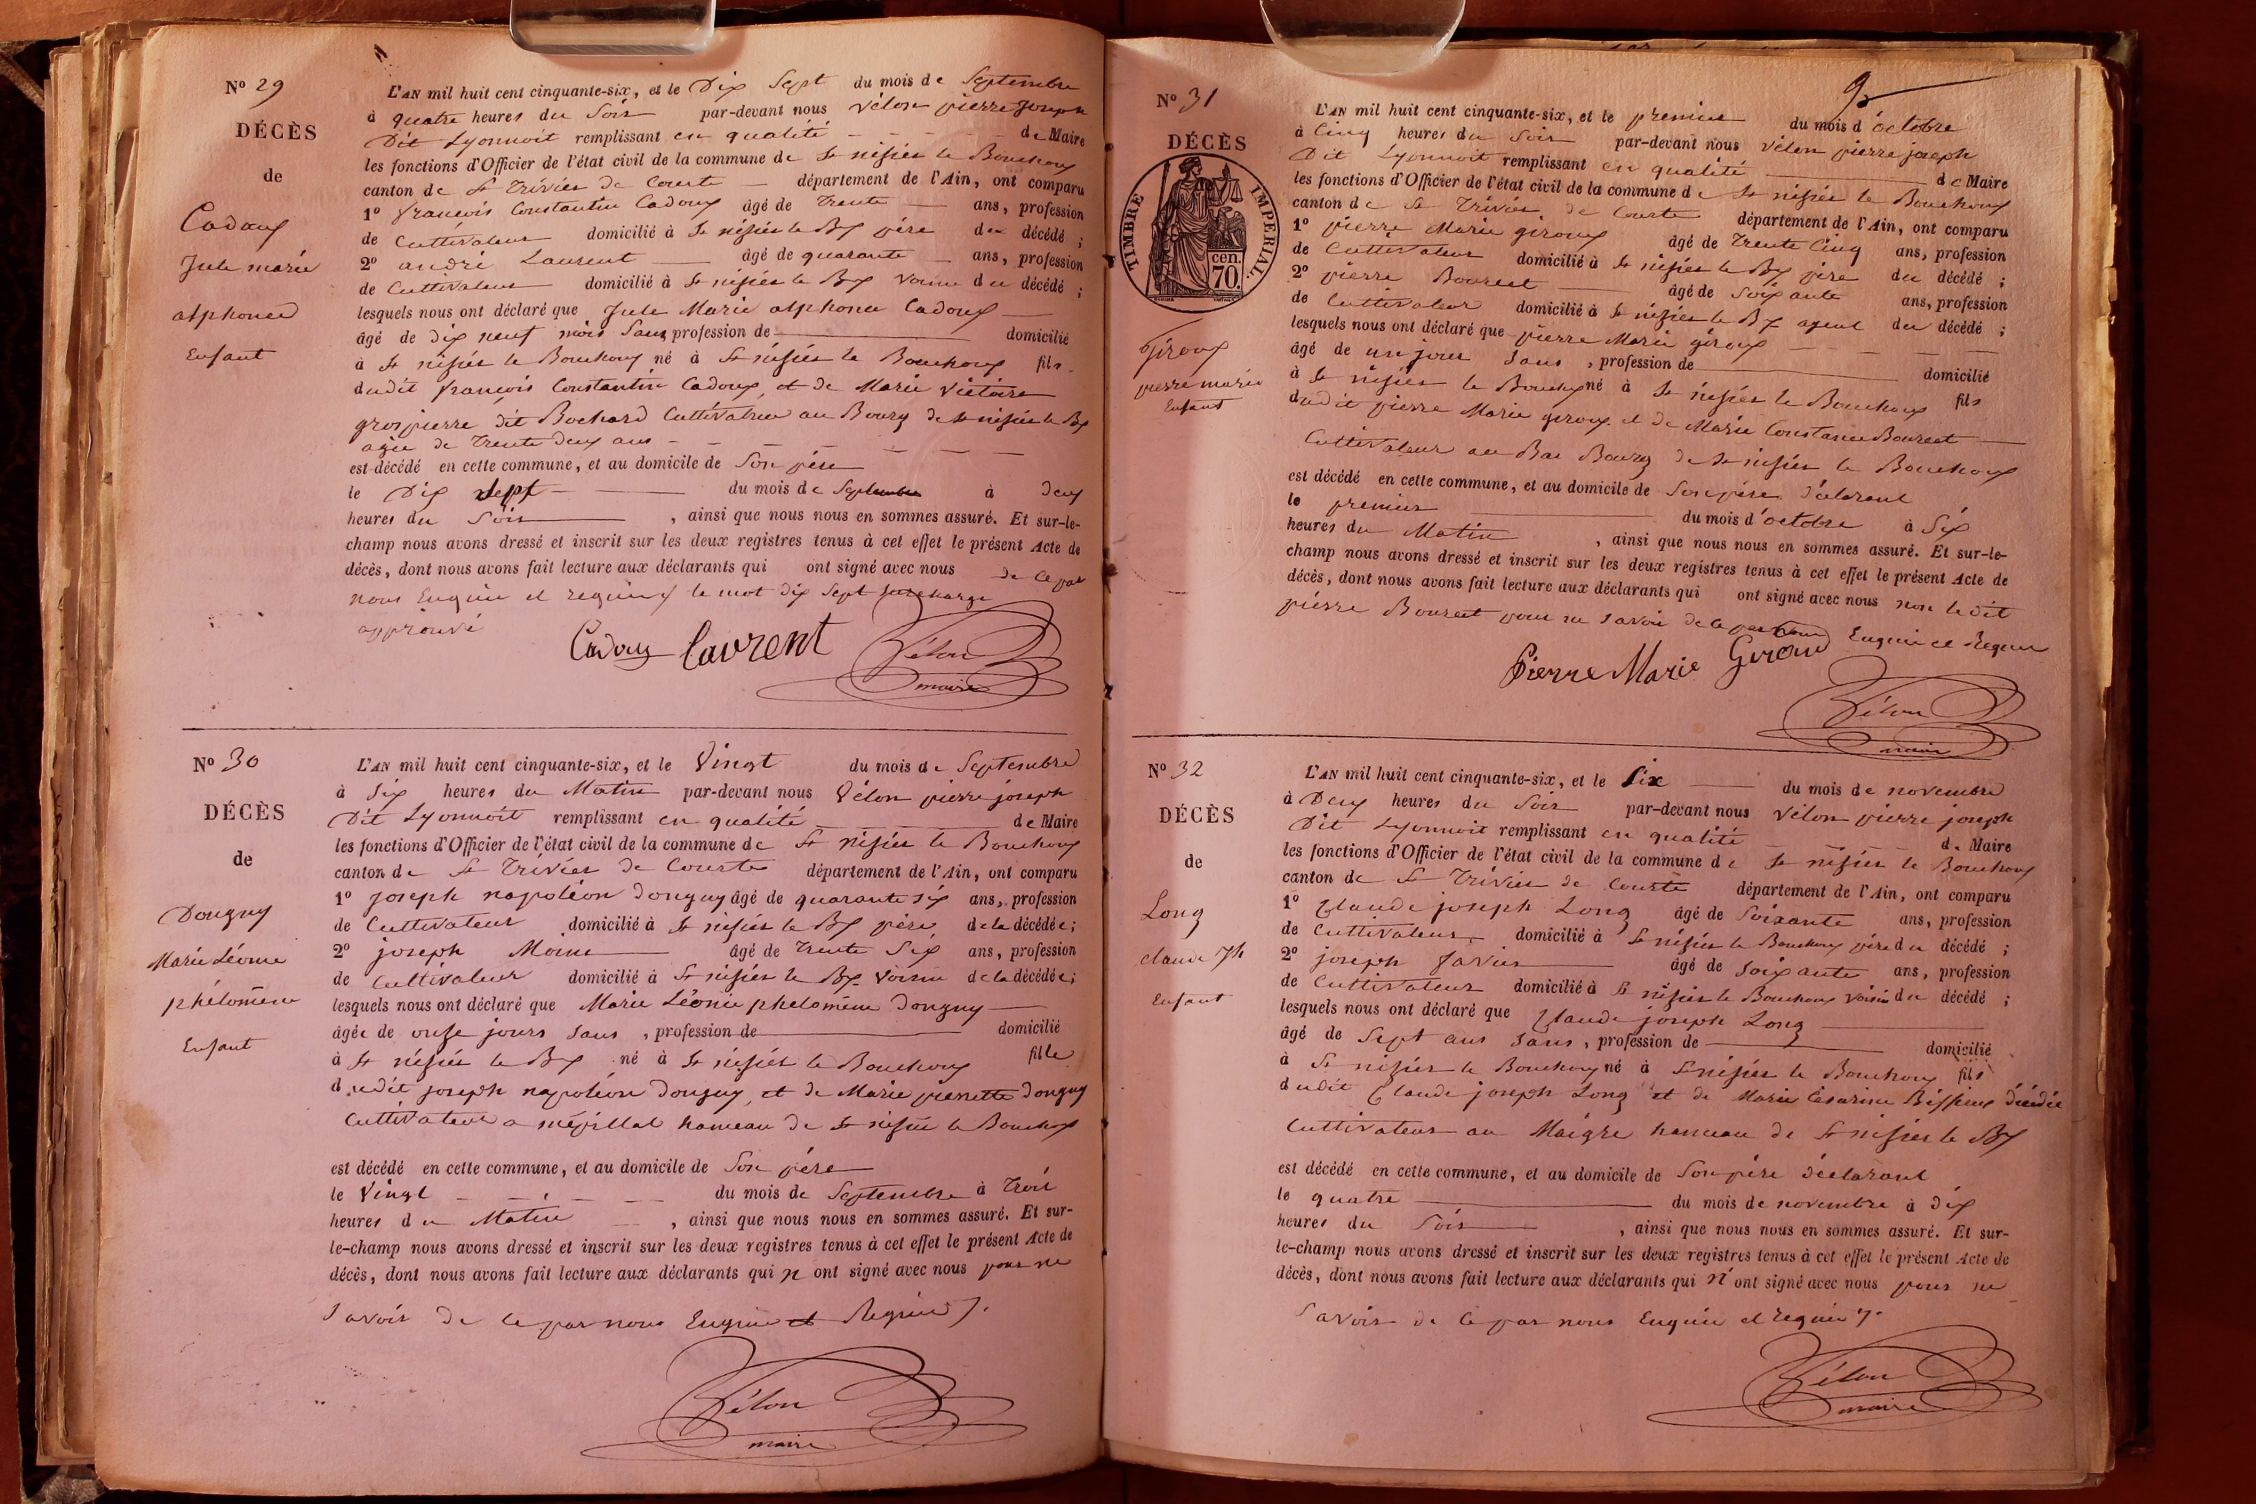 Nº 29
DÉCÈS
de
Cadoux
Jule marie
alphonce
Enfant
L'AN mil huit cent cinquante-six, et le Dix Sept du mois de Septembre
à quatre heures du Soir par-devant nous Vélon pierre Joseph
Dit Lyonnoit remplissant en qualité de Maire
les fonctions d'Officier de l'état civil de la commune de St nisier le Bouchoux
canton de St Trivier de Courte département de l'Ain, ont comparu
1º François Constantin Cadoux âgé de Trente ans, profession
de Cultivateur domicilié à St nisier le Bx père du décédé ;
2º andré Laurent âgé de quarante ans, profession
de Cultivateur domicilié à St nisier le Bx Voisin du décédé ;
lesquels nous ont déclaré que Jule Marie alphonce Cadoux
âgé de dix neuf mois Sans profession de domicilié
à St nisier le Bouchoux né à St nisier le Bouchoux fils
dudit françois Constantin Cadoux et de Marie Victoire
grospierre dit Bochard Cultivatrice au Bourg de St nisier le Bx
agée de Trente deux ans
est décédé en cette commune, et au domicile de Son père
le Dix Sept du mois de Septembre à deux
heures du Soir , ainsi que nous nous en sommes assuré. Et sur-le-
champ nous avons dressé et inscrit sur les deux registres tenus à cet effet le présent Acte de
décès, dont nous avons fait lecture aux déclarants qui ont signé avec nous de Ce par
nous Enquis et requis le mot dix Sept Surcharge
approuvé
Cadoux Laurent Vélon
maire
Nº 30
DÉCÈS
de
Douguy
Marie Léonie
phélomène
Enfant
L'AN mil huit cent cinquante-six, et le Vingt du mois de Septembre
à Six heures du Matin par-devant nous Vélon pierre joseph
Dit Lyonnoit remplissant en qualité de Maire
les fonctions d'Officier de l'état civil de la commune de St nisier le Bouchoux
canton de St Trivier de Courte département de l'Ain, ont comparu
1º joseph napoléon douguy âgé de quarante six ans, profession
de Cultivateur domicilié à St nisier le Bx père de la décédée ;
2º joseph Moine âgé de Trente Six ans, profession
de Cultivateur domicilié à St nisier le Bx Voisin de la décédée ;
lesquels nous ont déclaré que Marie Léonie phelomène Douguy
âgée de onze jours Sans , profession de domicilié
à St nisier le Bx né à St nisier le Bouchoux fille
dudit joseph napoléon Douguy, et de Marie pierrette Douguy
Cultivateur a mépillat hameau de St nisier le Bouchoux
est décédé en cette commune, et au domicile de Son père
le Vingt du mois de Septembre à Trois
heures du Matin , ainsi que nous nous en sommes assuré. Et sur-
le-champ nous avons dressé et inscrit sur les deux registres tenus à cet effet le présent Acte de
décès, dont nous avons fait lecture aux déclarants qui n ont signé avec nous pour ne
Savoir de Ce par nous Enquis et Requis
Vélon
maire
9
Nº 31
DÉCÈS
TIMBRE IMPERIAL.
cen.
70.
Giroux
pierre marie
Enfant
L'AN mil huit cent cinquante-six, et le premier du mois d'octobre
à Cinq heures du Soir par-devant nous Vélon pierre joseph
Dit Lyonnoit remplissant en qualité de Maire
les fonctions d'Officier de l'état civil de la commune de St nisier le Bouchoux
canton de St Trivier de Courte département de l'Ain, ont comparu
1º pierre Marie giroux âgé de Trente Cinq ans, profession
de Cultivateur domicilié à St nisier le Bx père du décédé ;
2º pierre Bourcet âgé de Soixante ans, profession
de Cultivateur domicilié à St nisier le Bx ayeul du décédé ;
lesquels nous ont déclaré que pierre Marie giroux
âgé de un jour Sans , profession de domicilié
à St nisier le Bouchoux né à St nisier le Bouchoux fils
dudit pierre Marie giroux et de Marie Constance Bourcet
Cultivateur au Bas Bourg de St nisier le Bouchoux
est décédé en cette commune, et au domicile de Son père déclarant
le premier du mois d'octobre à Six
heures du Matin , ainsi que nous nous en sommes assuré. Et sur-le-
champ nous avons dressé et inscrit sur les deux registres tenus à cet effet le présent Acte de
décès, dont nous avons fait lecture aux déclarants qui ont signé avec nous non ledit
pierre Bourcet pour ne Savoir de Ce par nous Enquis et Requis
Pierre Marie Giroud
Vélon
maire
Nº 32
DÉCÈS
de
Long
claude Jh
Enfant
L'AN mil huit cent cinquante-six, et le Six du mois de novembre
à Deux heures du Soir par-devant nous Vélon pierre joseph
Dit Lyonnoit remplissant en qualité de Maire
les fonctions d'Officier de l'état civil de la commune de St nisier le Bouchoux
canton de St Trivier de Courte département de l'Ain, ont comparu
1º Claude joseph Long âgé de Soixante ans, profession
de Cultivateur domicilié à St nisier le Bouchoux père du décédé ;
2º joseph favier âgé de Soixante ans, profession
de Cultivateur domicilié à St nisier le Bouchoux Voisin du décédé ;
lesquels nous ont déclaré que Claude joseph Long
âgé de Sept ans Sans , profession de domicilié
à St nisier le Bouchoux né à St nisier le Bouchoux fils
dudit Claude joseph Long et de Marie Césarine décédée
Cultivateur au Maigre hameau de St nisier le Bx
est décédé en cette commune, et au domicile de Son père déclarant
le quatre du mois de novembre à dix
heures du Soir , ainsi que nous nous en sommes assuré. Et sur-
le-champ nous avons dressé et inscrit sur les deux registres tenus à cet effet le présent Acte de
décès, dont nous avons fait lecture aux déclarants qui n' ont signé avec nous pour ne
Savoir de Ce par nous Enquis et requis
Vélon
maire